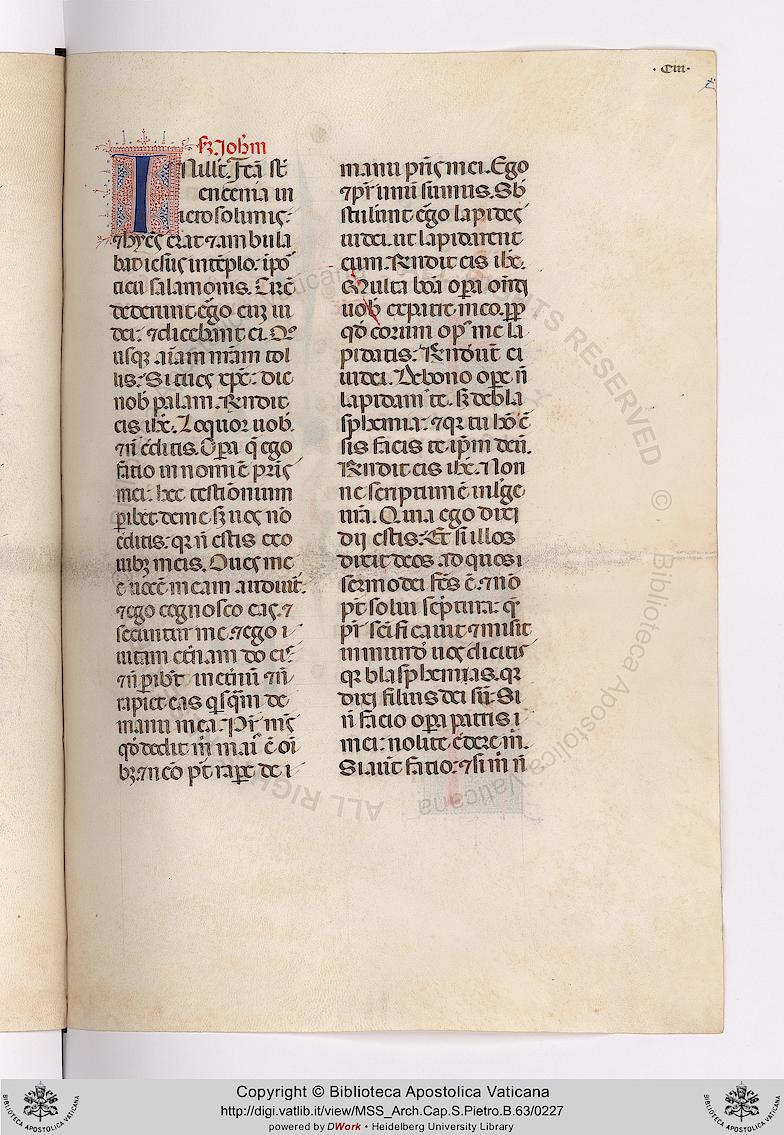 · Ciii ·
sꝫ Johm
IN illꝰ t̄. Fc̄a sūt
encenia in
ierosolimis:
⁊ hyēs erat ⁊ ambula
bat iesus in tēplo. ī po
ticu salamonis. Circū
dederunt ergo eum iu
dei: ⁊ dicebant ei. Q̊
usqꝫ aīam nr̄am tol
lis. Si tu es xp̄c: dic
nob̄ palam. Rn̄dit
eis ih̄c. Loquor uob̄.
⁊ n̄ c̄ditis. Oꝑa q̄ ego
facio in nomīe pr̄is
mei: hec testīonium
ꝑibēt de me sꝫ uos nō
c̄ditis: qꝛ n̄ estis ex o
uibꝫ meis. Oues me
e uocē meam audiūt:
⁊ ego cognosco eas. ⁊
secuntur me. ⁊ ego ui
uitam et̄nam do eis
⁊ n̄ ꝑibt̄ in et̄nū ⁊ n̄
rapiet eas qⁱsq̄m de
manu mea. Pr̄ m̄s
qd̄ dedit m̄ maiꝰ ē oī
bꝫ. ⁊ nēo pt̄ raꝑe de
manu pr̄is mei. Ego
⁊ pr̄ unū sumus. Sb̄
stulerunt ergo lapides
iudei. ut lapidarent
eum. Rn̄dit eis ih̄c.
Multa bōa oꝑa ondi
uob̄ ex patre meo. ꝓp̄
qd̄ eorum opꝰ me la
pidatis: Rn̄derūt ei
iudei. De bono oꝑe n̄
lapidam̄ te. sꝫ de bla
sphemia: ⁊ qꝛ tu hō c̄
sis facis te ip̄m deū.
Rn̄dit eis ih̄c. Non
ne scriptum ē in lege
ur̄a. Quia ego dixi
dij estis: Et si illos
dixit deos. ad quos
sermo dei fc̄s ē. ⁊ nō
pt̄ solui sc̄ptura: q̄
pr̄ sc̄ificauit ⁊ misit
in mundū uos dicitis
qꝛ blasphemas. qꝛ
dixi filius dei sū. Si
n̄ facio oꝑa patris
mei: nolite c̄dere m̄.
Si aūt facio: ⁊ si m̄ n̄
ALL RIGHTS RESERVED © Biblioteca Apostolica Vaticana
Copyright © Biblioteca Apostolica Vaticana
http://digi.vatlib.it/view/MSS_Arch.Cap.S.Pietro.B.63/0227
powered by DWork • Heidelberg University Library
BIBLIOTECA APOSTOLICA VATICANA
BIBLIOTECA APOSTOLICA VATICANA